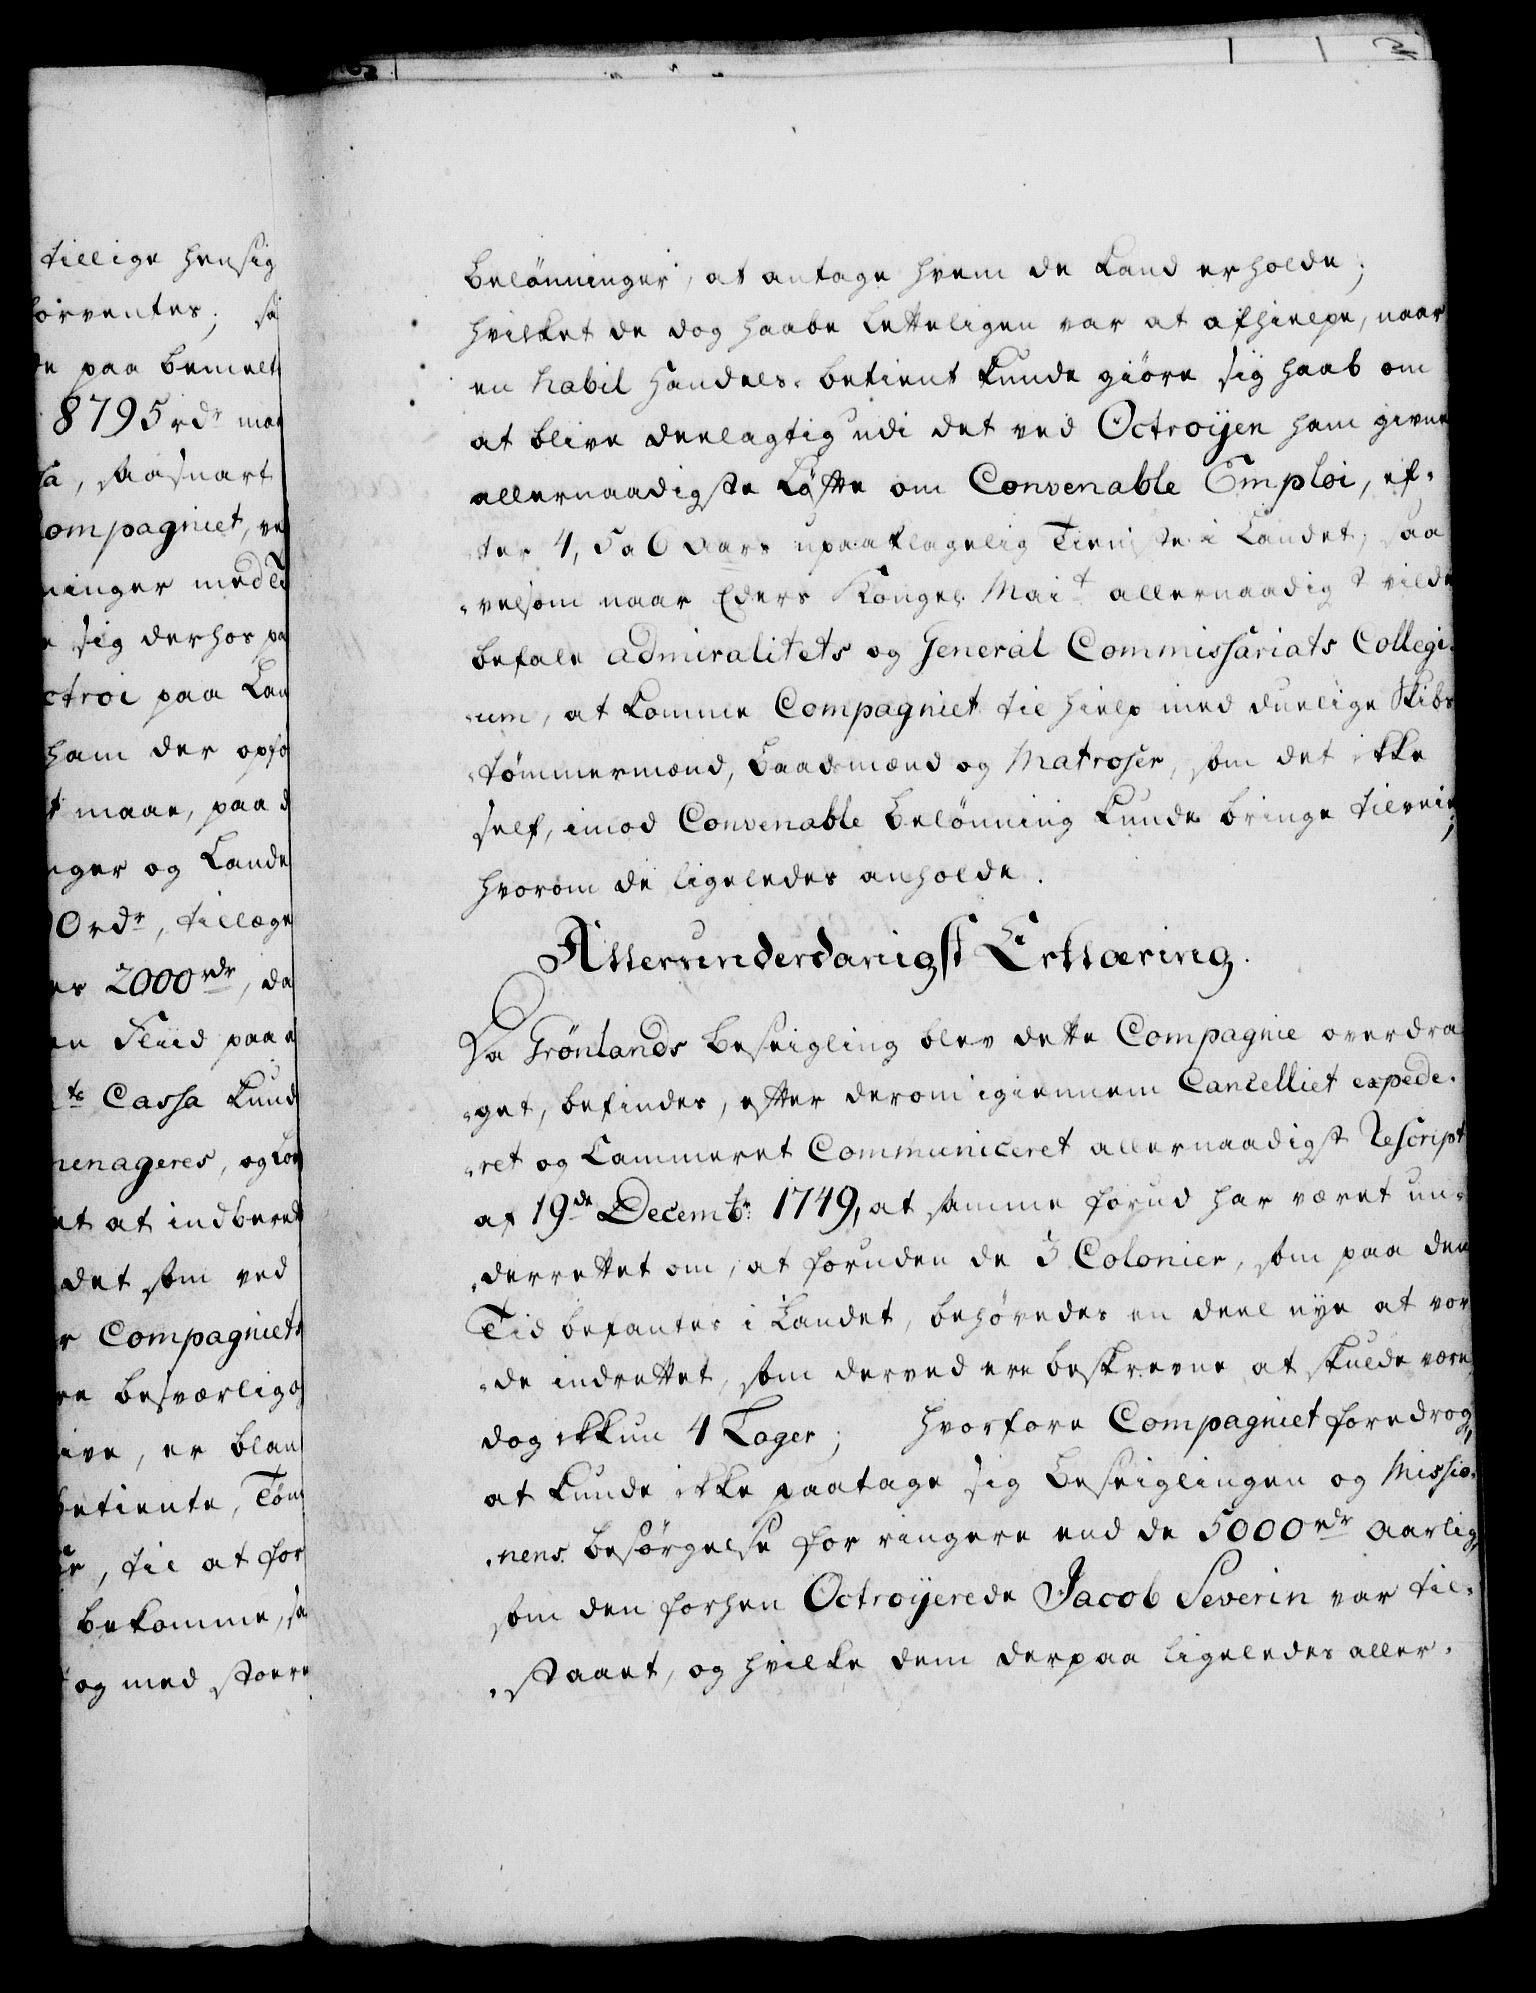 tillige hensig
forventes; så
de paa bemelt
8795 rdr maa
sa, saasnart
Compagniet, ve
ninger med Ti
e sig derhos pa
ctroi paa Lan
ham der opfø
t maae, paa d
nger og Lande
0 rdr, tillæge
es 2000 rdr, da
en Fliid paa e
ts Cassa kund
menageres, og kon
et at indberet
det som ved
r Compagniets
re besværlig o
ive, er blan
betiente, Tøm
e, til at for
bekomme, sa
og med stoere
belönninger, at antage hvem de kand erholde;
hvilket de dog haabe letteligen var at afhielpe, naar
en habil Handels-betient kunde giöre sig haab om
at blive deelagtig udi det ved Octroijen ham givne
allernaadigste Löfte om Convenable Emploi, ef-
-ter 4, 5 a 6 Aars upaaklagelig Tieniste i Landet; saa
-velsom naar Eders Kongel. Mait allernaadigst vilde
befale Admiralitets og General Commissariats Collegi-
-um, at komme Compagniet til hielp med duelige Skibs
-tömmermænd, Baadsmænd og Matroser, som det ikke
self, imod Convenable belönning kunde bringe tilveie;
hvorom de ligeledes anholde.
Allerunderdanigst Erklæring.
Da Grönlands beseigling blev dette Compagnie overdra-
-get, befindes, efter derom igiennem Cancelliet expede-
-ret og Cammeret Communiceret allernaadigst Rescript
af 19de Decembr: 1749, at samme forud har været un-
-derrettet om, at foruden de 3 Colonier, som paa den
Tid befantes i Landet, behövedes en deel nye at vor-
-de indrettet, som derved ere beskrevne at skulde være,
dog ikkun 4 Loger; hvorfore Compagniet foredrog,
at kunde ikke paatage sig beseiglingen og Missio-
-nens besörgelse for ringere end de 5000 rdr aarlig,
som den forhen Octroijerede Jacob Severin var til-
-staaet, og hvilke dem derpaa ligeledes aller-